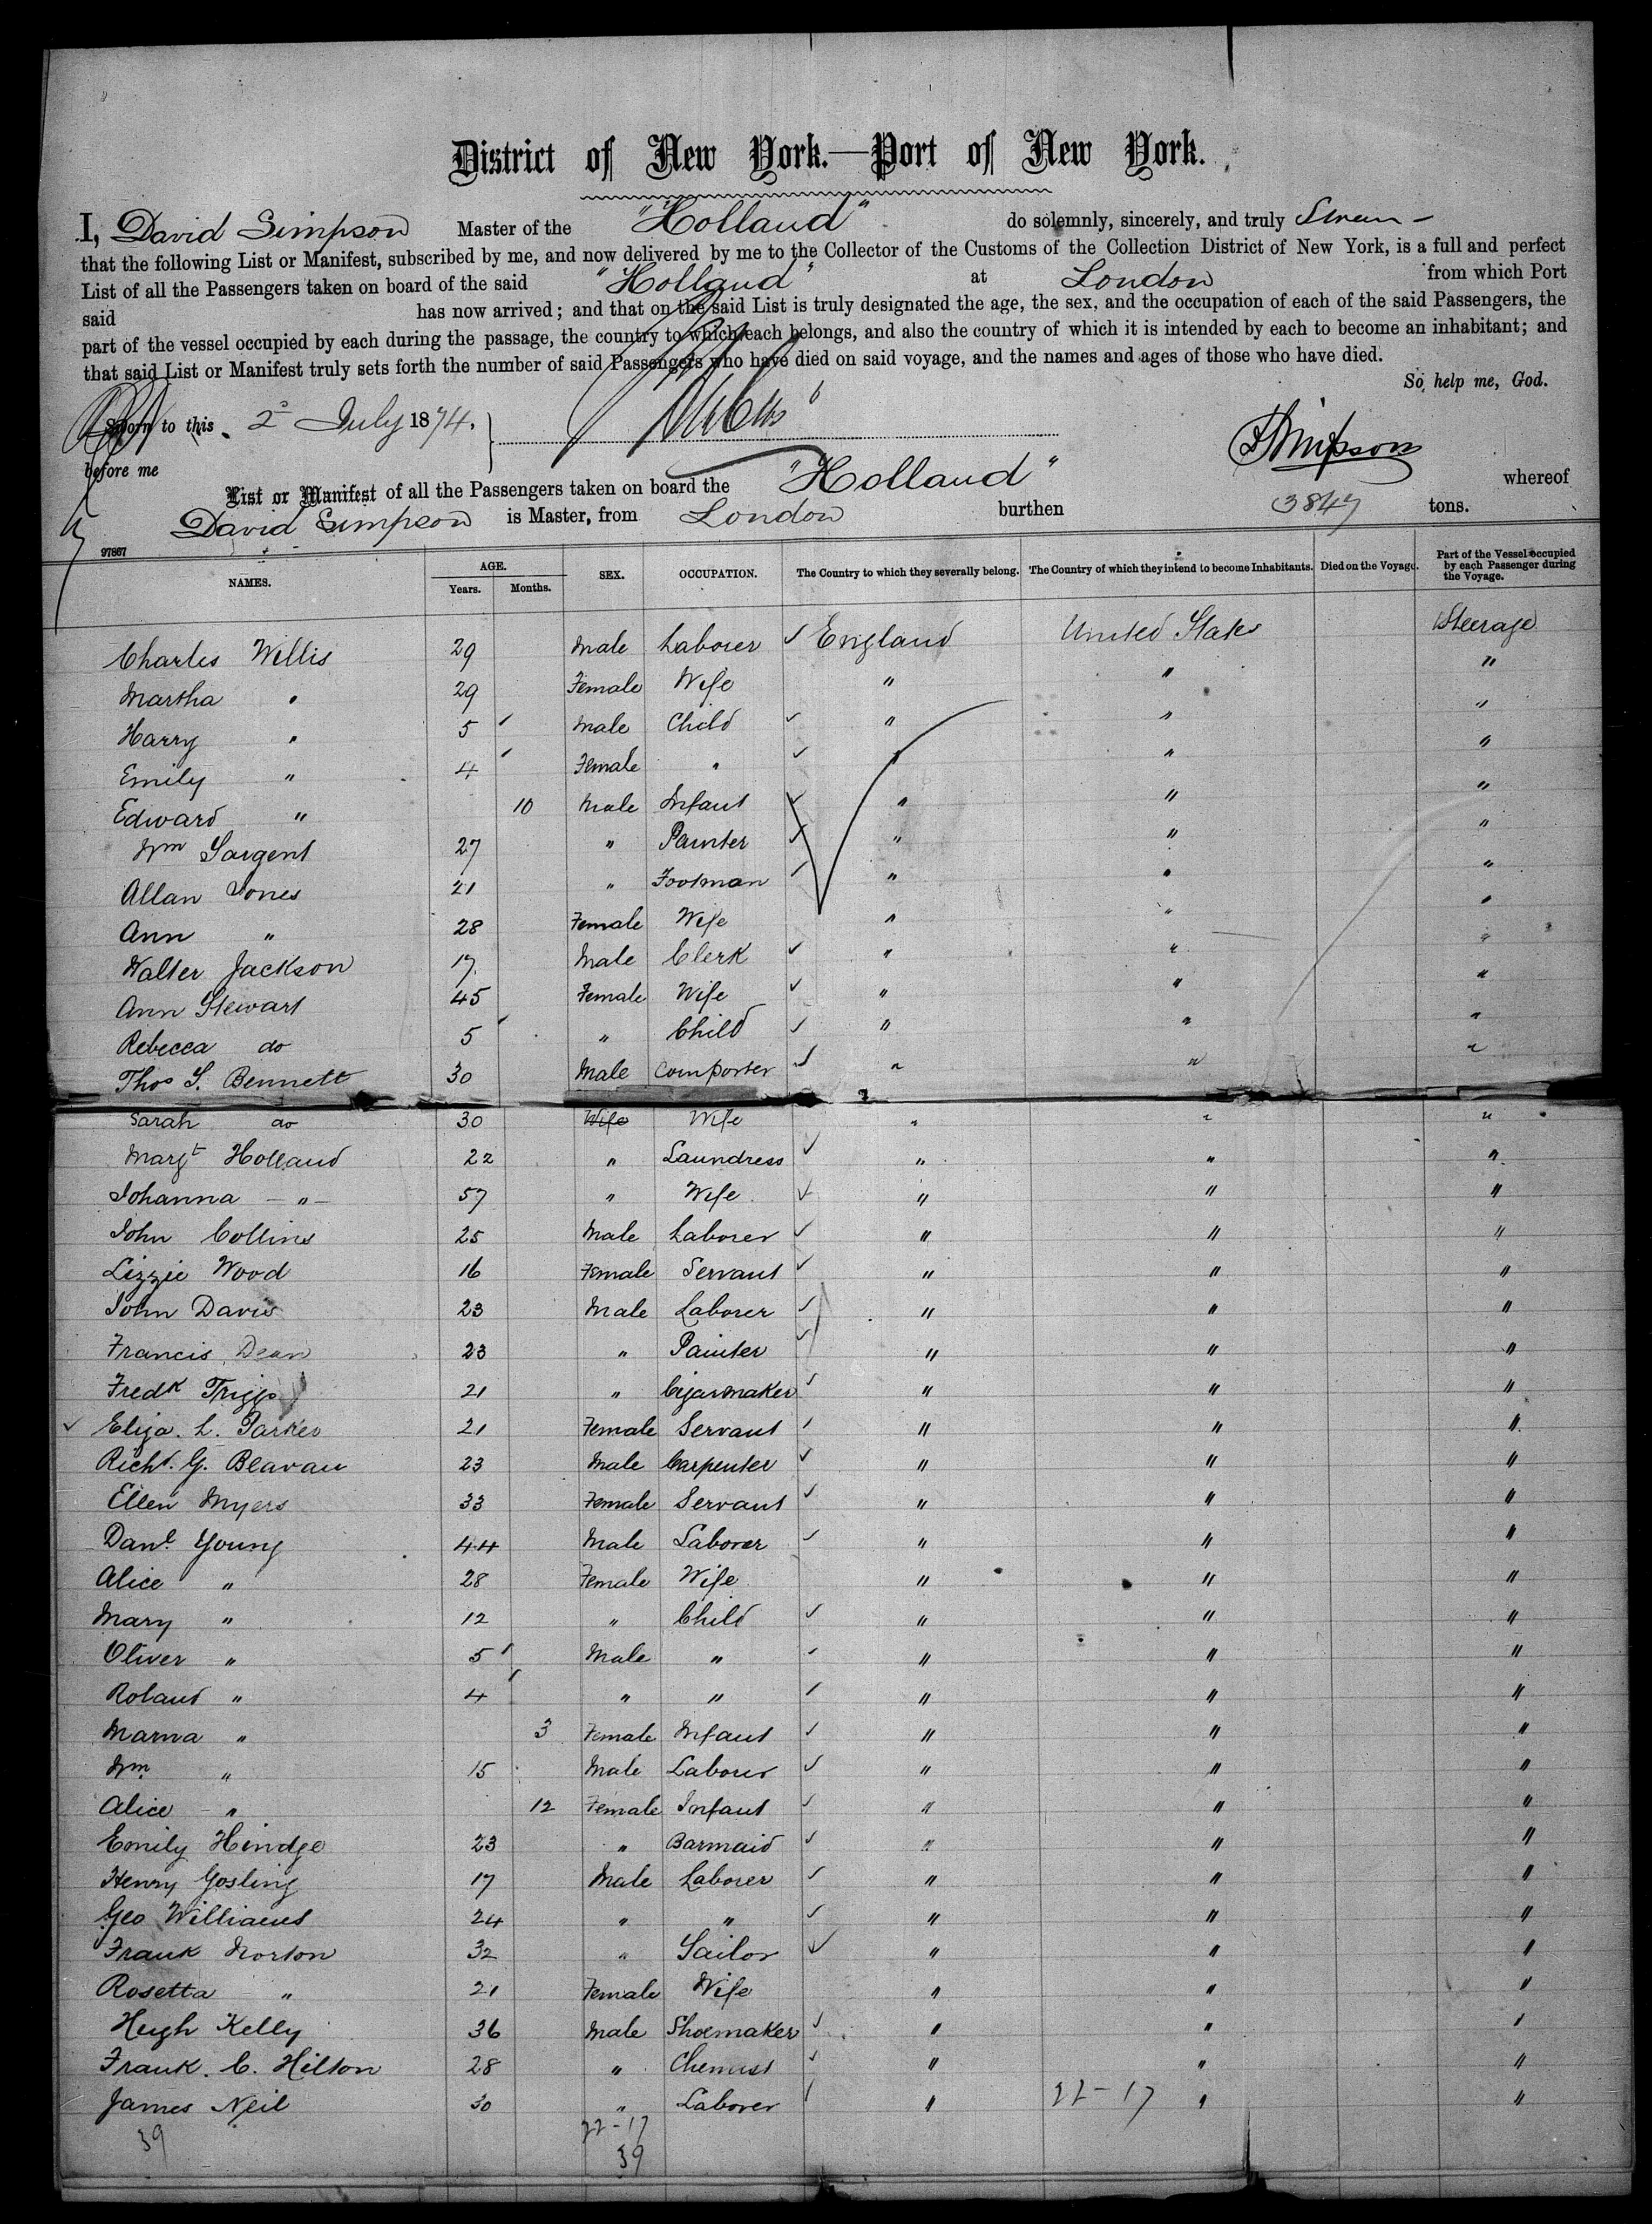 District of New York.—Port of New York.
I, David Simpson Master of the "Holland" do solemnly, sincerely, and truly Swear -
that the following List or Manifest, subscribed by me, and now delivered by me to the Collector of the Customs of the Collection District of New York, is a full and perfect
List of all the Passengers taken on board of the said "Holland" at London from which Port
said has now arrived; and that on the said List is truly designated the age, the sex, and the occupation of each of the said Passengers, the
part of the vessel occupied by each during the passage, the country to which each belongs, and also the country of which it is intended by each to become an inhabitant; and
that said List or Manifest truly sets forth the number of said Passengers who have died on said voyage, and the names and ages of those who have died.
So help me, God.
Sworn to this 2 July 1874.
DSimpson
before me
List or Manifest of all the Passengers taken on board the "Holland" whereof
David Simpson is Master, from London burthen 3847 tons.
97867
NAMES. AGE. Years. Months. SEX. OCCUPATION. The Country to which they severally belong. The Country of which they intend to become Inhabitants. Died on the Voyage. Part of the Vessel occupied by each Passenger during the Voyage.
Charles Willis 29 Male Laborer England United States Steerage
Martha " 29 Female Wife " " "
Harry " 5 Male Child " " "
Emily " 4 Female " " " "
Edward " 10 Male Infant " " "
Wm Sargent 27 " Painter " " "
Allan Jones 21 " Footman " " "
Ann " 28 Female Wife " " "
Walter Jackson 17 Male Clerk " " "
Ann Stewart 45 Female Wife " " "
Rebecca do 5 " Child " " "
Thos S. Bennett 30 Male " " "
Sarah do 30 Wife Wife " " "
Margt Holland 22 " Laundress " " "
Johanna - " - 57 " Wife " " "
John Collins 25 Male Laborer " " "
Lizzie Wood 16 Female Servant " " "
John Davis 23 Male Laborer " " "
Francis Dean 23 " Painter " " "
Fredk Triggs 21 " Cigarmaker " " "
Eliza. L. Parker 21 Female Servant " " "
Richd. G. Beavan 23 Male Carpenter " " "
Ellen Myers 33 Female Servant " " "
Danl Young 44 Male Laborer " " "
Alice " 28 Female Wife " " "
Mary " 12 " Child " " "
Oliver " 5 Male " " " "
Roland " 4 " " " " "
" 3 Female Infant " " "
Wm " 15 Male Laborer " " "
Alice " 12 Female Infant " " "
Emily Hindge 23 " Barmaid " " "
Henry Gosling 17 Male Laborer " " "
Geo Williams 24 " " " " "
Frank Norton 32 " Sailor " " "
Rosetta " 21 Female Wife " " "
Hugh Kelly 36 Male Shoemaker " " "
Frank. C. Hilton 28 " Chemist " " "
James Neil 30 " Laborer " 22-17 " "
39 22-17
39